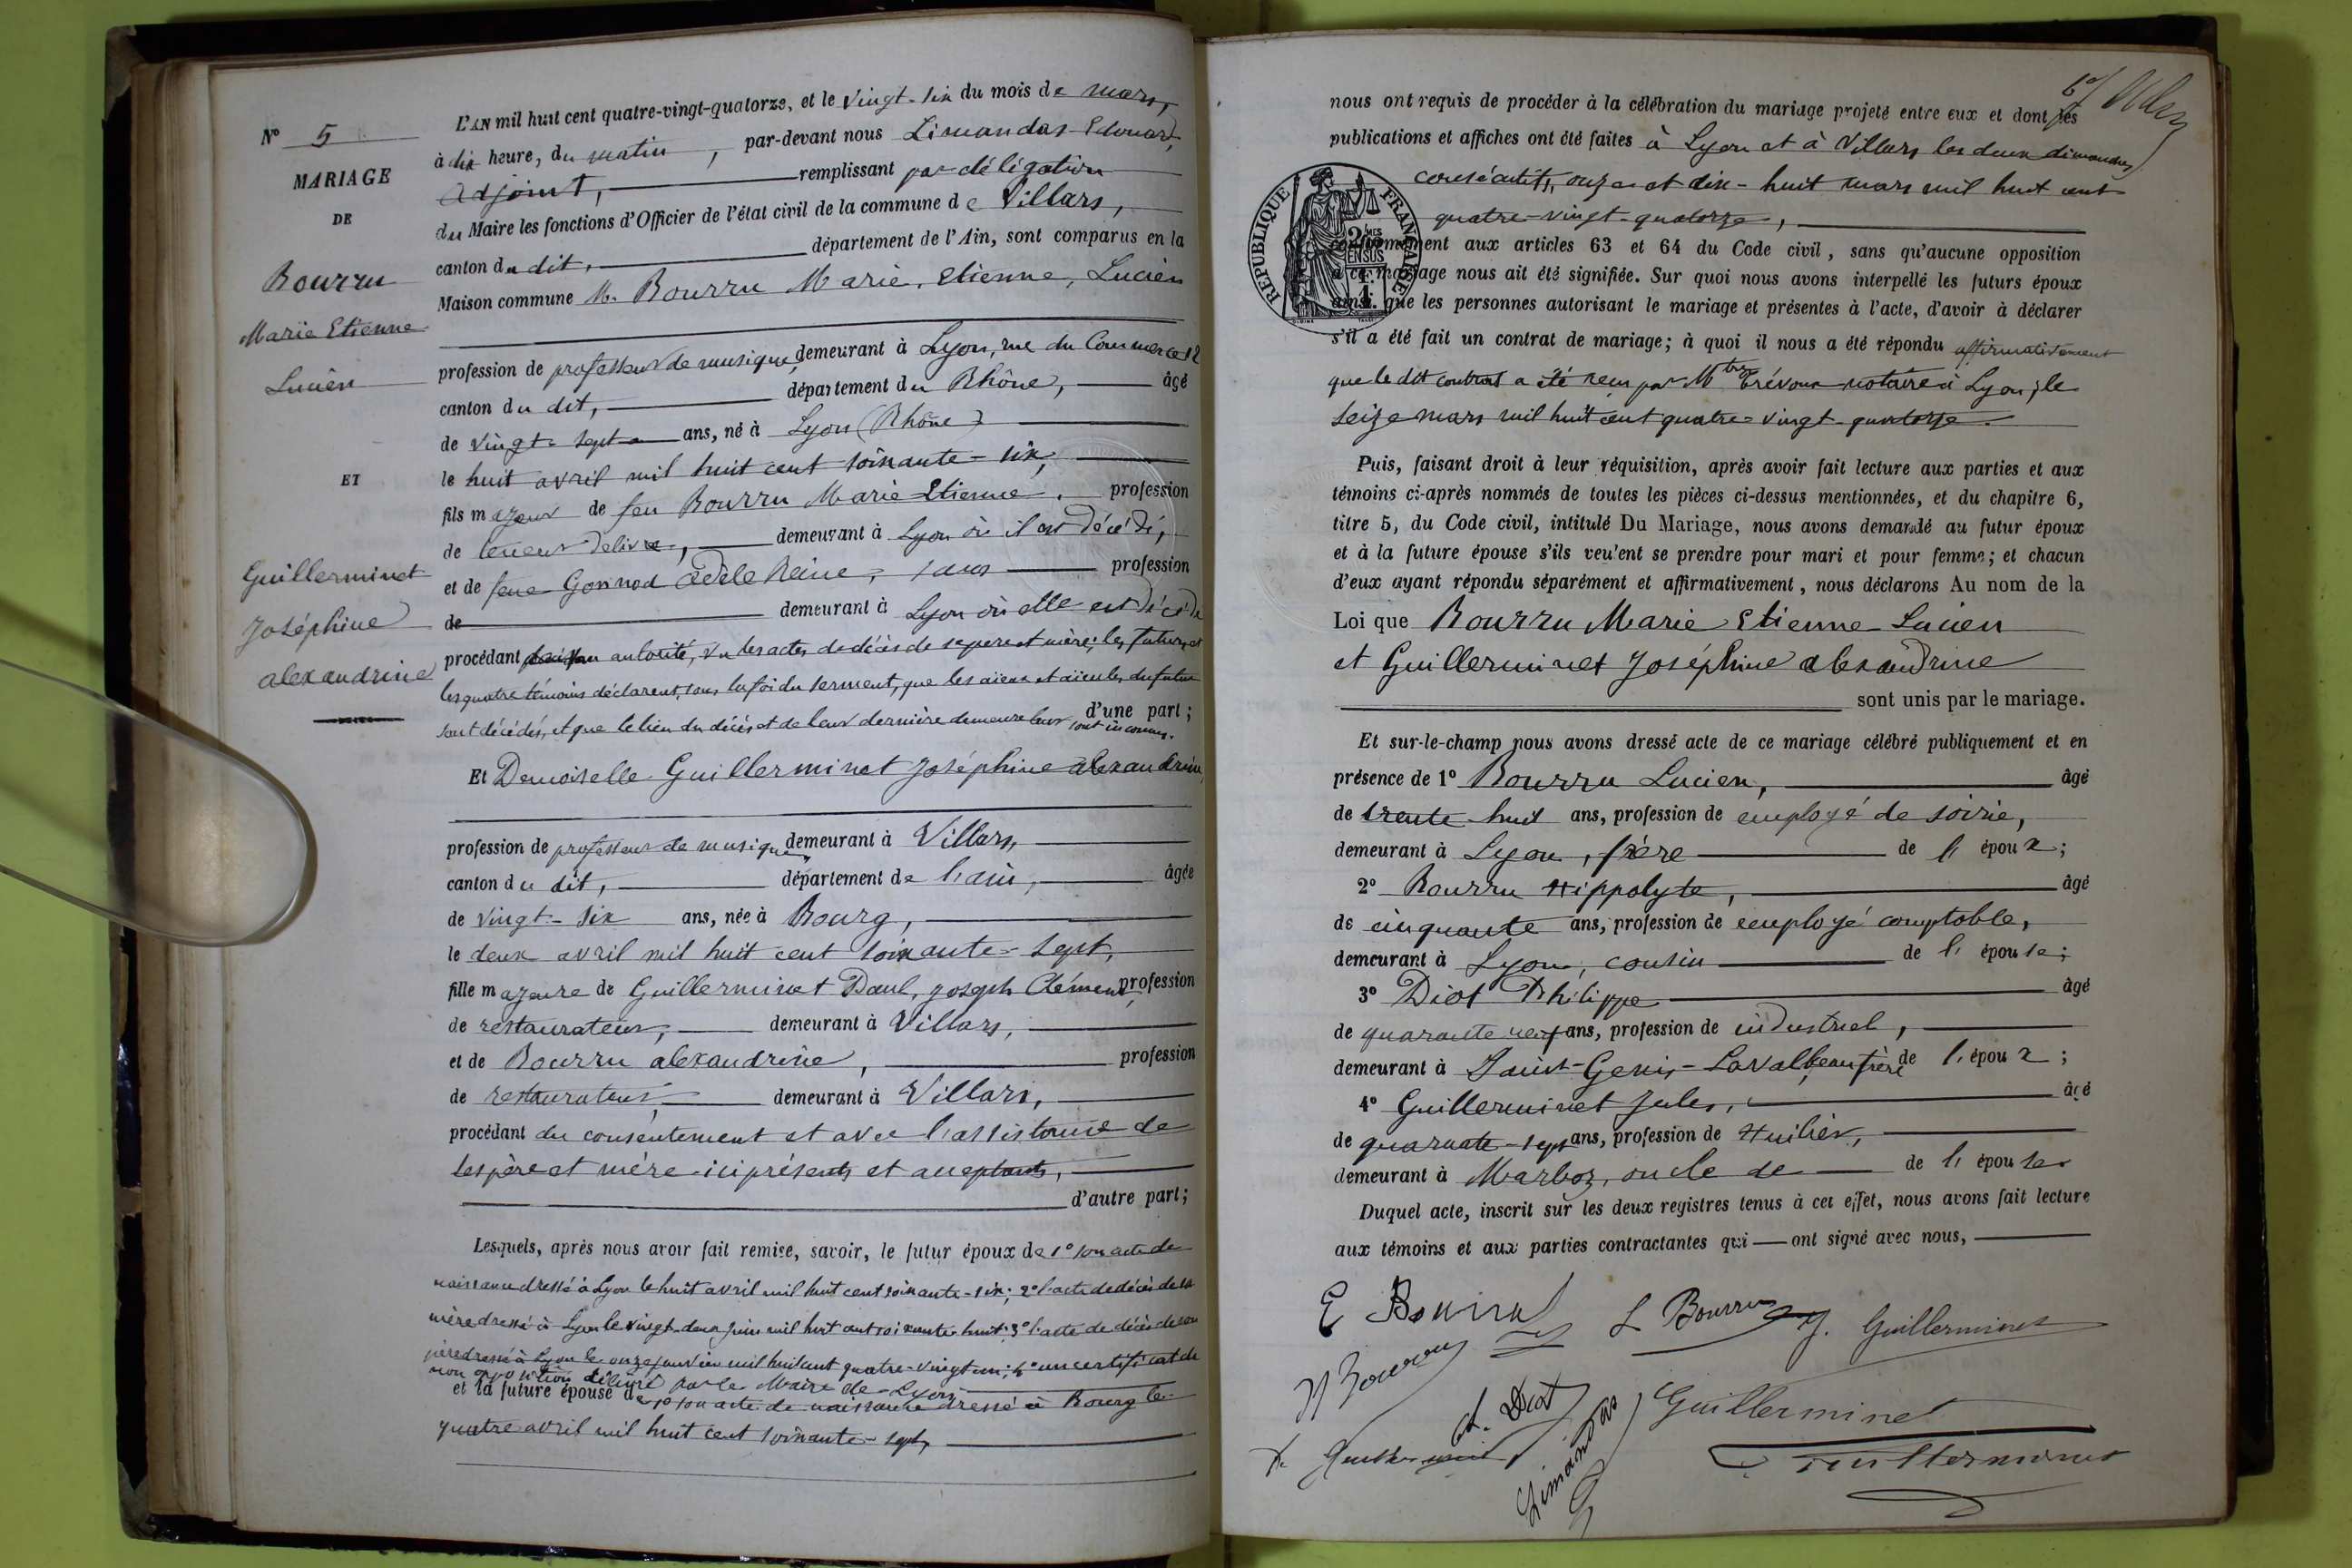 N° 5
MARIAGE
DE
Bourru
Marie Etienne
Lucien
ET
Guillerminet
Joséphine
alexandrine
L'AN mil huit cent quatre-vingt-quatorze, et le vingt-six du mois de mars,
à dix heure, du matin, par-devant nous Limandas Edouard,
adjoint, remplissant par délégation
du Maire les fonctions d'Officier de l'état civil de la commune de Villars,
canton du dit, département de l'Ain, sont comparus en la
Maison commune M. Bourru Marie, Etienne, Lucien
profession de professeur de musique, demeurant à Lyon, rue du Commerce 12
canton du dit, département du Rhône, âgé
de vingt-sept ans, né à Lyon (Rhône)
le huit avril mil huit cent soixante-six,
fils majeur de feu Bourru Marie Etienne, profession
de teneur de livre, demeurant à Lyon où il est décédé,
et de feue Gonnod Adèle Reine, sans profession
de demeurant à Lyon où elle est décédée
procédant autorité, vu les actes de décès de ses père et mère; les futurs et
les quatre témoins déclarent, sous la foi du serment, que les aïeux et aïeules du futur
sont décédés, et que le lieu du décès et de leur dernière demeure leur sont inconnus. d'une part;
Et Demoiselle Guillerminet Joséphine alexandrine,
profession de professeur de musique, demeurant à Villars,
canton du dit, département de l'ain, âgée
de vingt-six ans, née à Bourg,
le deux avril mil huit cent soixante-sept,
fille majeure de Guillerminet Paul, joseph Clément, profession
de restaurateur, demeurant à Villars,
et de Bourru alexandrine, profession
de restaurateur, demeurant à Villars,
procédant du consentement et avec l'assistance de
ses père et mère ici présents et acceptants,
d'autre part;
Lesquels, après nous avoir fait remise, savoir, le futur époux de 1° son acte de
naissance dressé à Lyon le huit avril mil huit cent soixante-six; 2° l'acte de décès de sa
mère dressé à Lyon le vingt-deux juin mil huit cent soixante huit; 3° l'acte de décès de son
père dressé à Lyon le onze janvier mil huit cent quatre-vingt un; 4° un certificat de
non opposition délivré par le Maire de Lyon
et la future épouse de son acte de naissance dressé à Bourg le
quatre avril mil huit cent soixante-sept,
nous ont requis de procéder à la célébration du mariage projeté entre eux et dont les
publications et affiches ont été faites à Lyon et à Villars les deux dimanches
consécutifs, onze et dix-huit mars mil huit cent
quatre-vingt-quatorze,
RÉPUBLIQUE FRANÇAISE
conformément aux articles 63 et 64 du Code civil, sans qu'aucune opposition
à ce mariage nous ait été signifiée. Sur quoi nous avons interpellé les futurs époux
ainsi que les personnes autorisant le mariage et présentes à l'acte, d'avoir à déclarer
s'il a été fait un contrat de mariage; à quoi il nous a été répondu affirmativement
que le dit contrat a été reçu par Mtre Trévoux notaire à Lyon, le
seize mars mil huit cent quatre-vingt-quatorze.
Puis, faisant droit à leur réquisition, après avoir fait lecture aux parties et aux
témoins ci-après nommés de toutes les pièces ci-dessus mentionnées, et du chapitre 6,
titre 5, du Code civil, intitulé Du Mariage, nous avons demandé au futur époux
et à la future épouse s'ils veulent se prendre pour mari et pour femme; et chacun
d'eux ayant répondu séparément et affirmativement, nous déclarons Au nom de la
Loi que Bourru Marie Etienne Lucien
et Guillerminet Joséphine alexandrine
sont unis par le mariage.
Et sur-le-champ nous avons dressé acte de ce mariage célébré publiquement et en
présence de 1° Bourru Lucien, âgé
de trente-huit ans, profession de employé de soirie,
demeurant à Lyon, frère de l'époux;
2° Bourru Hippolyte, âgé
de cinquante ans, profession de employé comptable,
demeurant à Lyon, cousin de l'épouse;
3° Diot Philippe âgé
de quarante neuf ans, profession de industriel,
demeurant à Saint-Genis-Laval, beau frère de l'époux;
4° Guillerminet Jules, âgé
de quarante-sept ans, profession de Huilier,
demeurant à Marboz, oncle de de l'épouse
Duquel acte, inscrit sur les deux registres tenus à cet effet, nous avons fait lecture
aux témoins et aux parties contractantes qui ont signé avec nous,
E Bourru L Bourru J. Guillerminet
H Bourru
Diot
Limandas
Guillerminet
Guillerminet